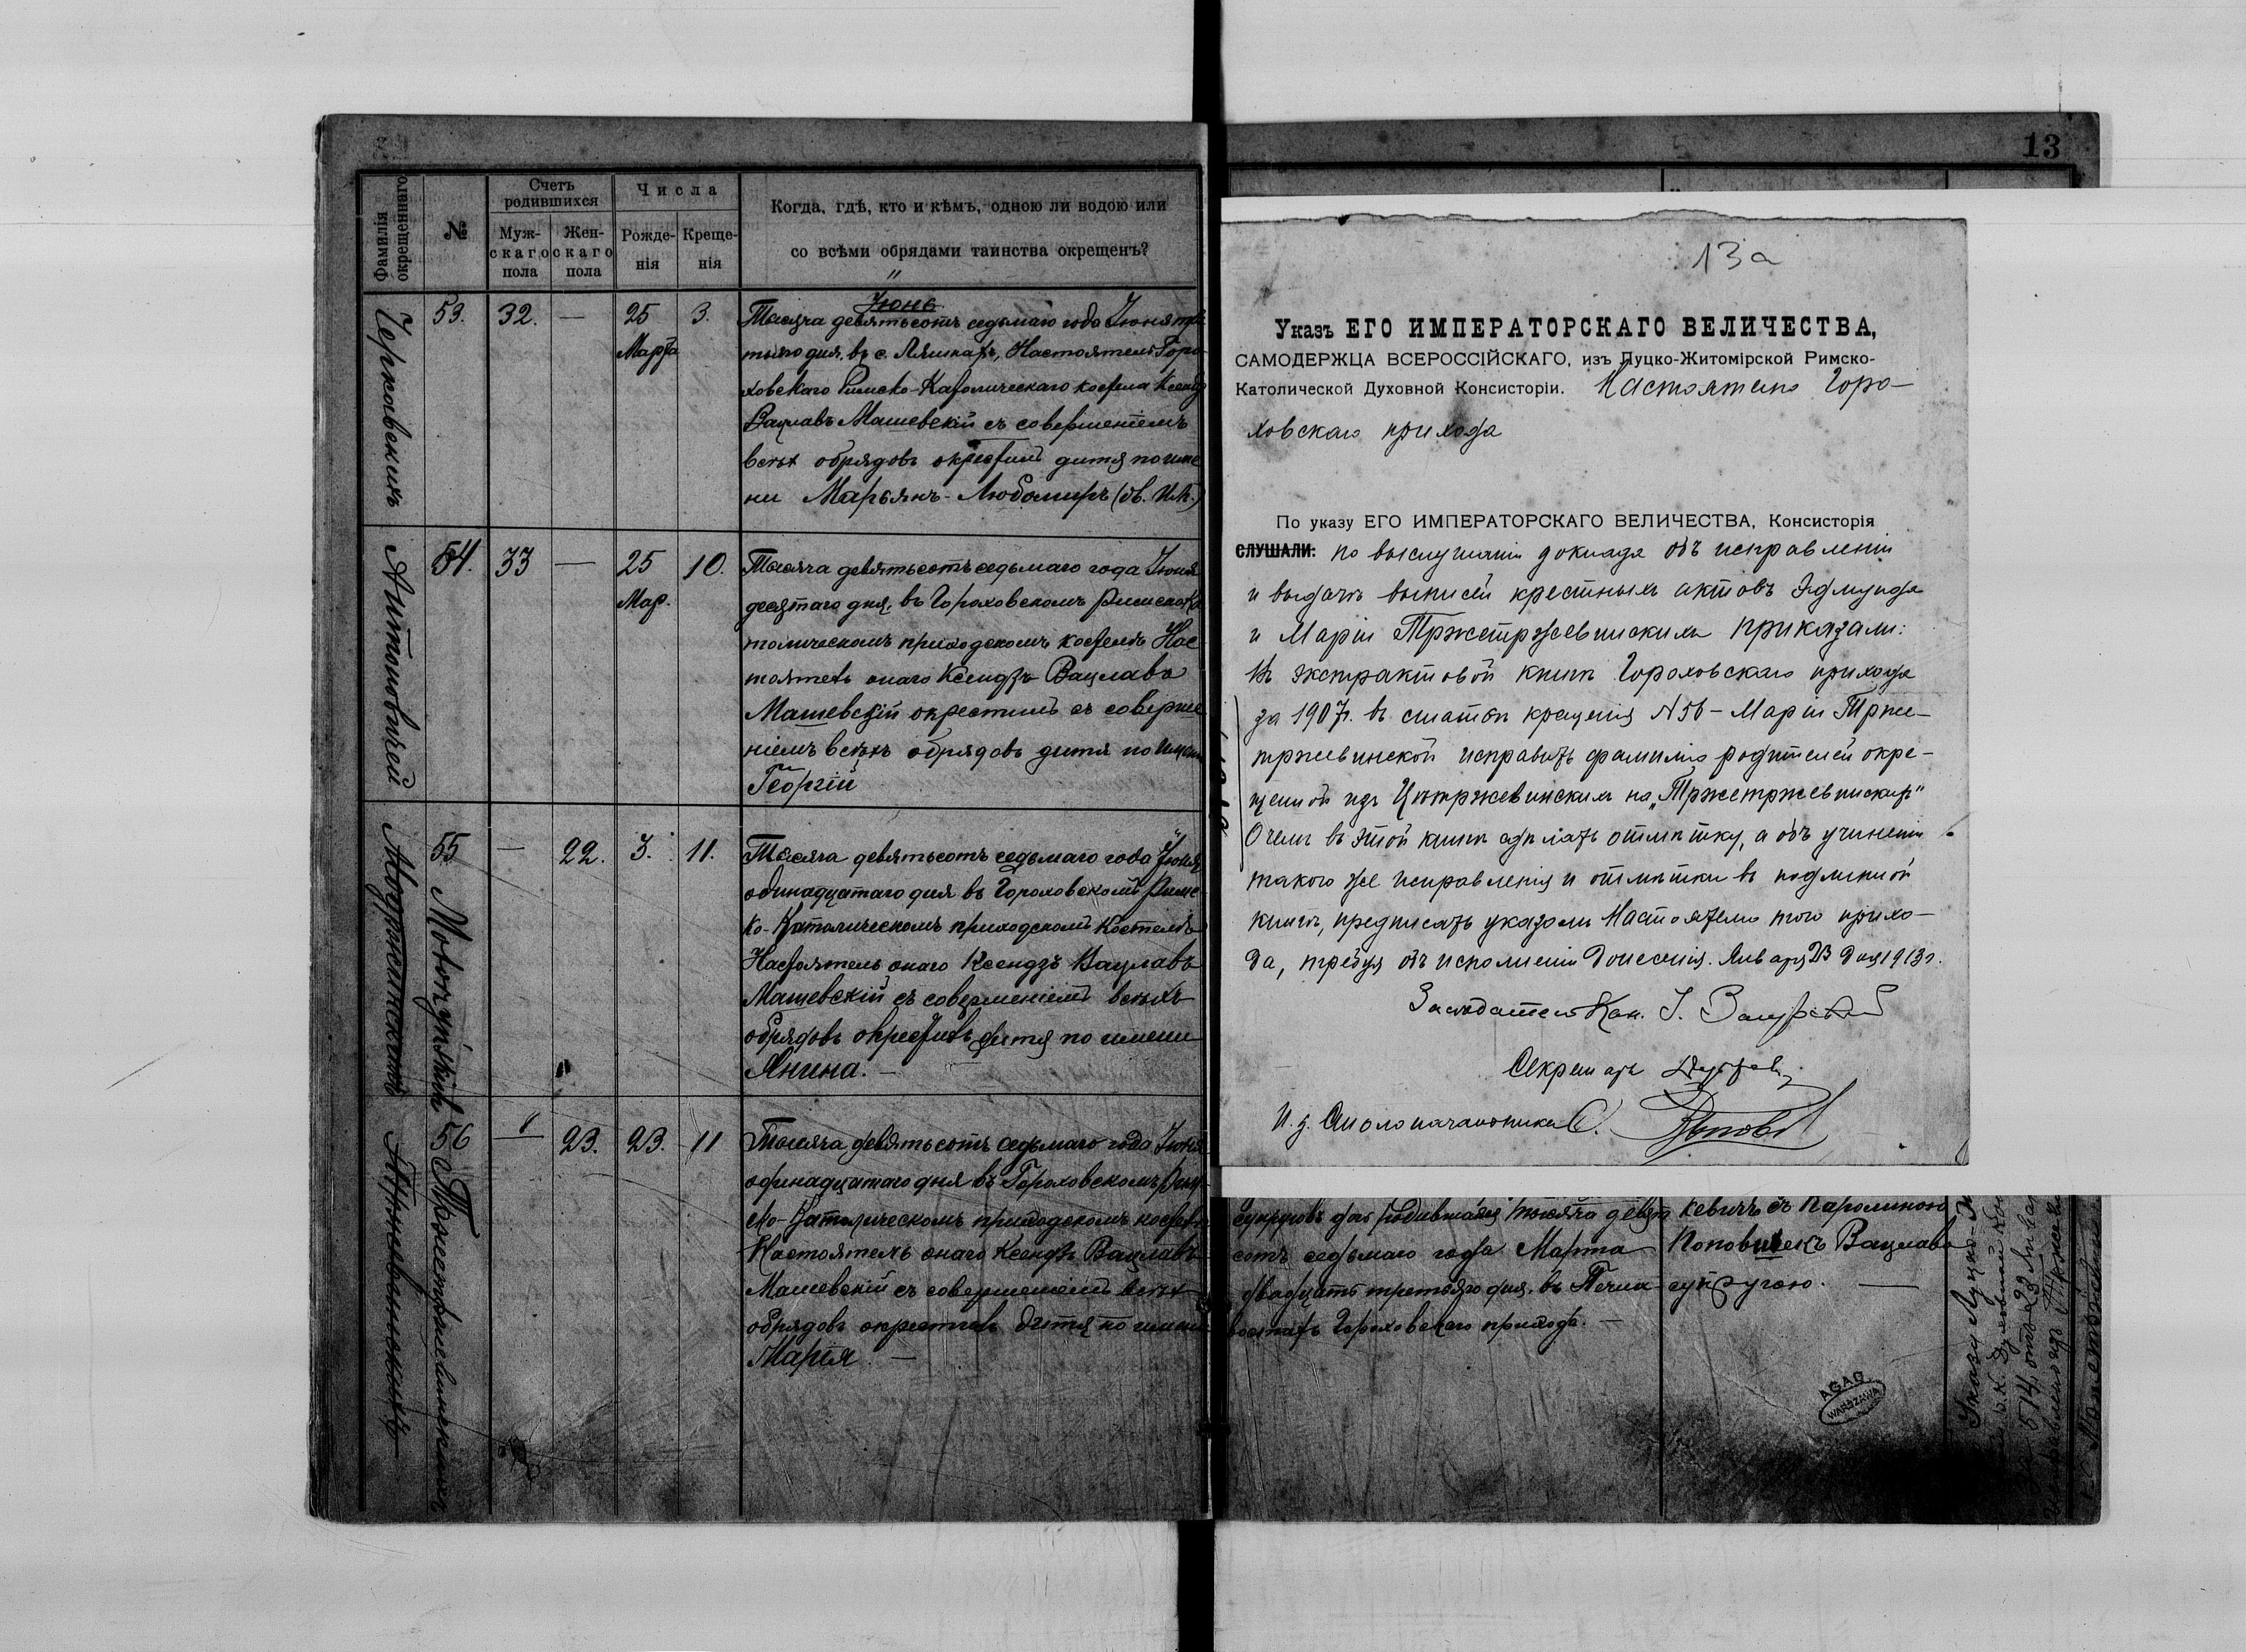 13
Фамилія окрещеннаго
№
Счетъ родившихся
Муж-
скаго
пола
Жен-
скаго
пола
Числа
Рожде-
нія
Креще-
нія
Когда, гдѣ, кто и кѣмъ, одною ли водою или
со всѣми обрядами таинства окрещенъ?
Июнь
53. 32. — 25 Марта 3.
Тысяча девятьсотъ седьмаго года Июня тре
тьяго дня, въ с. Ляшкахъ, Настоятель Горо
ховскаго Римско-Католическаго костела Ксендз
Вацлавъ Машевскій съ совершеніемъ
всѣхъ обрядовъ окрестилъ дитя по име
ни Марьянъ-Любомиръ
Антоновичей
54. 33 — 25 Мар. 10.
Тысяча девятьсотъ седьмаго года Июня
десятаго дня, въ Гороховскомъ Римско Ка
толическомъ приходскомъ костелѣ Нас
тоятель онаго Ксендзъ Вацлавъ
Машевскій окрестилъ съ соверше
ніемъ всѣхъ обрядовъ дитя по имени
Георгій
55 — 22. 3. 11.
Тысяча девятьсотъ седьмаго года Июня
одинадцатаго дня въ Гороховскомъ Римс
ко-Католическомъ приходскомъ Костелѣ
Настоятель онаго Ксендзъ Вацлавъ
Машевскій съ совершеніемъ всѣхъ
обрядовъ окрестилъ дитя по имени
Янина. —
Тржетржевинскихъ
56 — 23. 23. 11
Тысяча девятьсотъ седьмаго года Июня
одинадцатаго дня въ Гороховскомъ Рим
ско-Католическомъ приходскомъ костелѣ
Настоятель онаго Ксендзъ Вацлавъ
Машевскій съ совершеніемъ всѣхъ
обрядовъ окрестилъ дитя по имени
Марія. —
13а
Указъ ЕГО ИМПЕРАТОРСКАГО ВЕЛИЧЕСТВА,
САМОДЕРЖЦА ВСЕРОССІЙСКАГО, изъ Луцко-Житомірской Римско-
Католической Духовной Консисторіи. Настоятелю Горо-
ховскаго прихода
По указу ЕГО ИМПЕРАТОРСКАГО ВЕЛИЧЕСТВА, Консисторія
СЛУШАЛИ: по выслушаніи доклада объ исправленіи
и выдачѣ выписей крестныхъ актовъ Эдмунда
и Маріи Тржетржевинскихъ приказали:
Въ экстрактовой книгѣ Гороховскаго прихода
за 1907г. въ статьѣ крещенія N 56 - Маріи Трже-
тржевинской исправить фамилію родителей окре-
щенной изъ Цетржевинскихъ на „Тржетржевинскихъ"
О чемъ въ этой книгѣ сдѣлать отмѣтку, а объ учиненіи
такого же исправленія и отмѣтки въ подлинной
книгѣ, предписать указомъ Настоятелю того прихо-
да, требуя объ исполненіи донесенія. Января 23 дня 1913г.
Засѣдатель Кан. І.
Секретарь
И. д. Столоначальника
супруговъ дочь родившаяся тысяча девять
сотъ седьмаго года Марта
двадцать третьяго дня, въ
Гороховскаго прихода. —
кевичъ съ Каролиною
Вацлава
супругою. —
AGAD
WARSZAWA